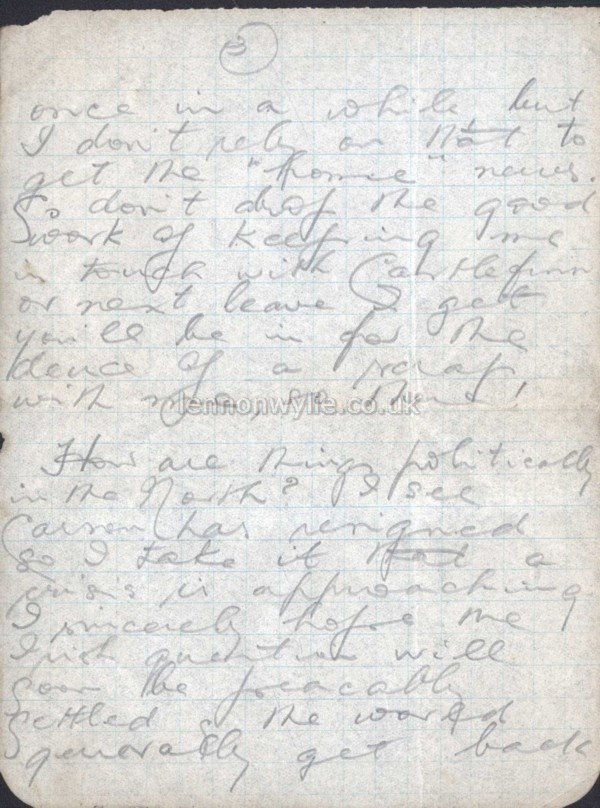 3
once in a while but
I don't rely on that to
get the "home" news.
So don't drop the good
work of keeping me
in touch with Castlefinn
or next leave I get
you'll be in for the
deuce of a scrap
with myself, so there!
lennonwylie.co.uk
How are things politically
in the North? I see
Carson has resigned
so I take it that a
crisis is approaching.
I sincerely hope the
Irish question will
soon be peacably
settled & the world
generally get back